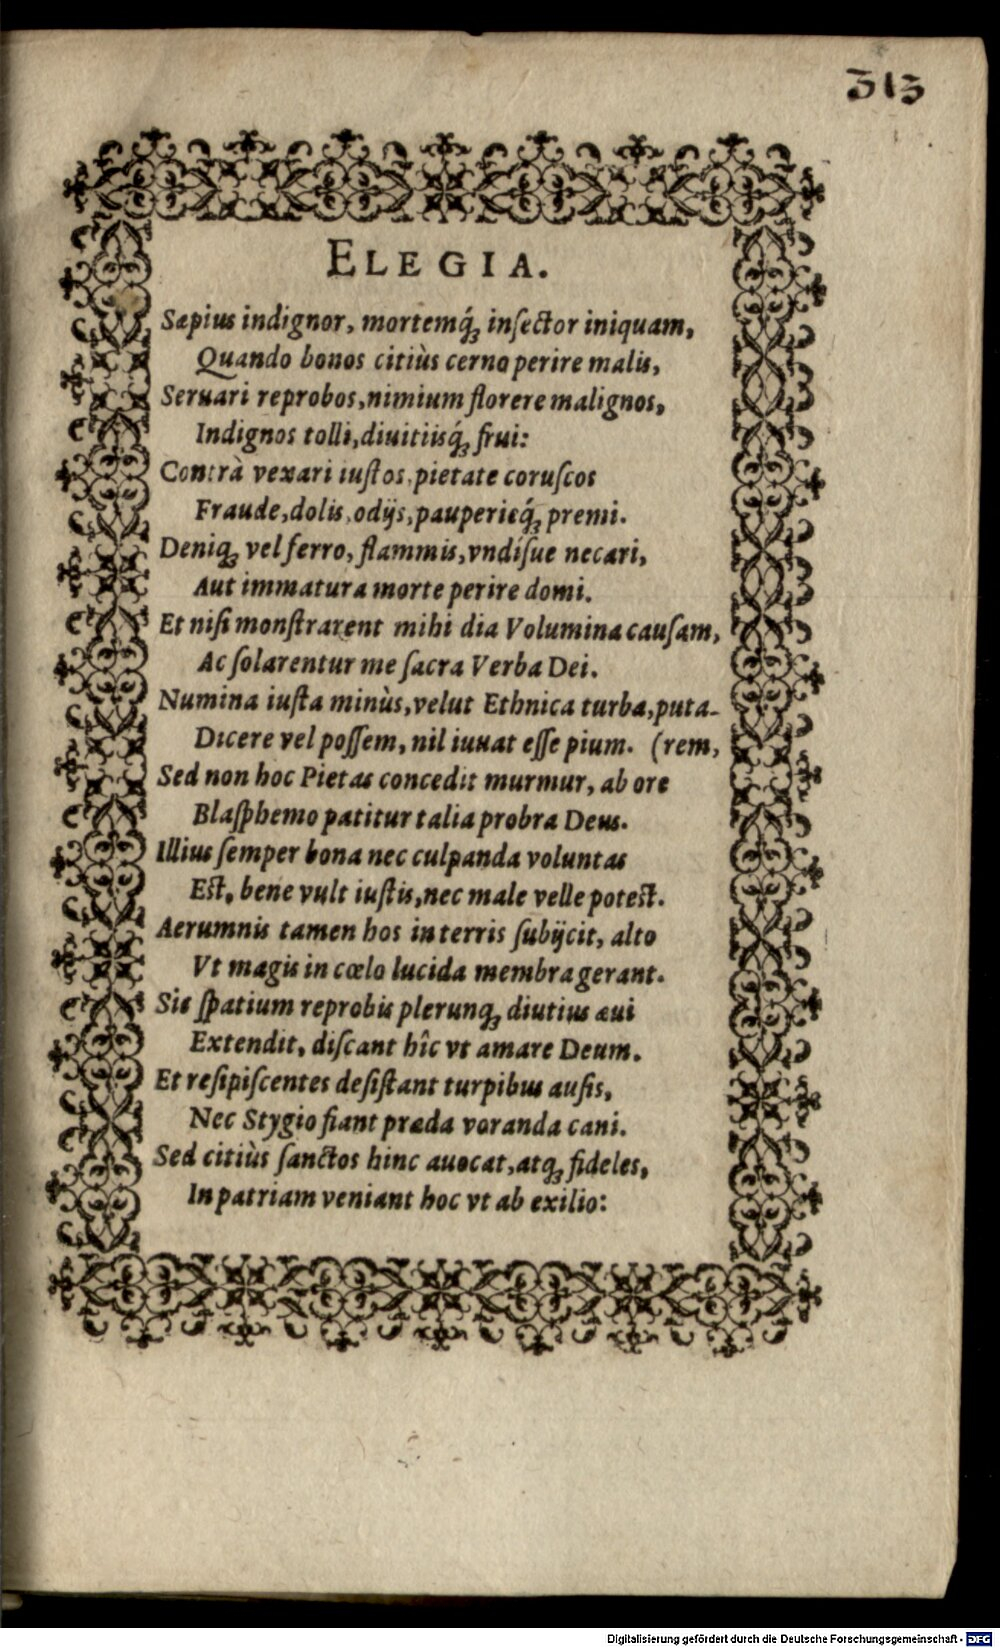 313
ELEGIA.
Sæpius indignor, mortemq́ꝫ inſector iniquam,
Quando bonos citiùs cerno perire malis,
Seruari reprobos, nimium florere malignos,
Indignos tolli, diuitiisq́ꝫ frui:
Contrà vexari iuſtos, pietate coruſcos
Fraude, dolis, odijs, pauperieq́ꝫ premi.
Deniqꝫ vel ferro, flammis, vndiſue necari,
Aut immatura morte perire domi.
Et niſi monſtrarent mihi dia Volumina cauſam,
Ac ſolarentur me ſacra Verba Dei.
Numina iuſta minùs, velut Ethnica turba, puta-
Dicere vel poſſem, nil iuuat eſſe pium. (rem,
Sed non hoc Pietas concedit murmur, ab ore
Blaſphemo patitur talia probra Deus.
Illius ſemper bona nec culpanda voluntas
Eſt, bene vult iuſtis, nec male velle poteſt.
Aerumnis tamen hos in terris ſubijcit, alto
Vt magis in cœlo lucida membra gerant.
Sic ſpatium reprobis plerunqꝫ diutius æui
Extendit, diſcant hîc vt amare Deum.
Et reſipiſcentes deſiſtant turpibus auſis,
Nec Stygio fiant præda voranda cani.
Sed citiùs ſanctos hinc auocat, atqꝫ fideles,
In patriam veniant hoc vt ab exilio:
Digitalisierung gefördert durch die Deutsche Forschungsgemeinschaft - DFG